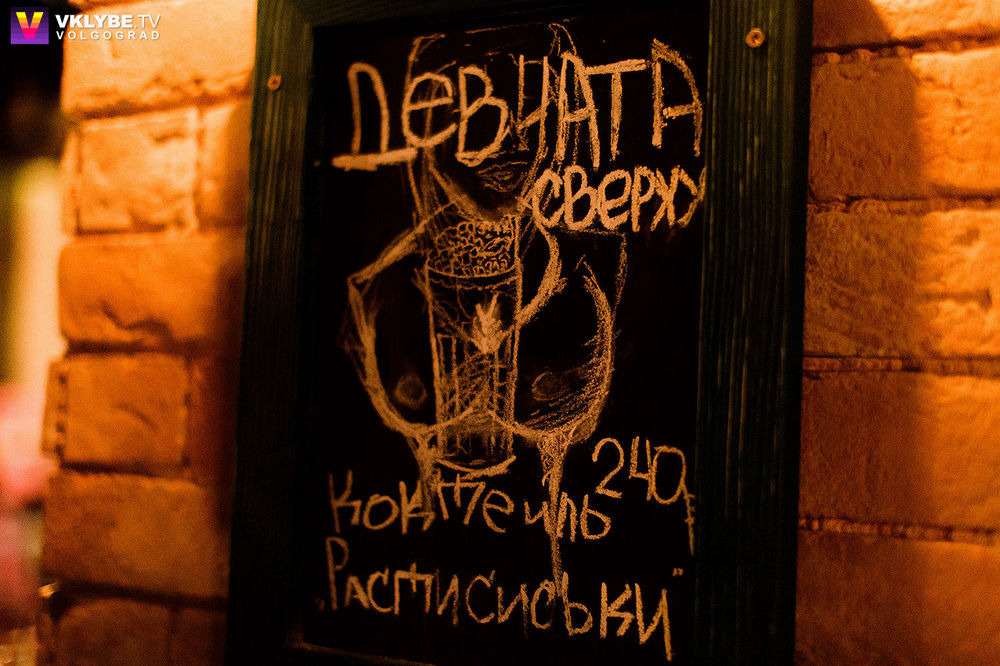 VKLYBE.TV
VOLGOGRAD
ДЕВЧАТА
СВЕРХУ
Коктейль 240р
„Растисиськи"